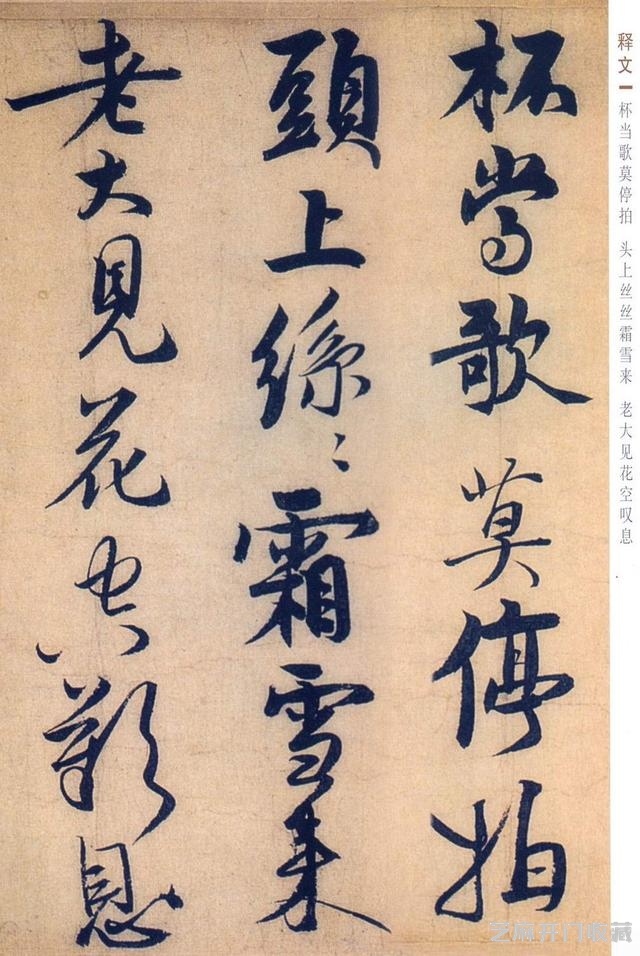 杯當歌莫停拍
頭上絲〻霜雪来
老大見花空歎息
释文
杯当歌莫停拍 头上丝丝霜雪来 老大见花空叹息
艺麻开门收藏